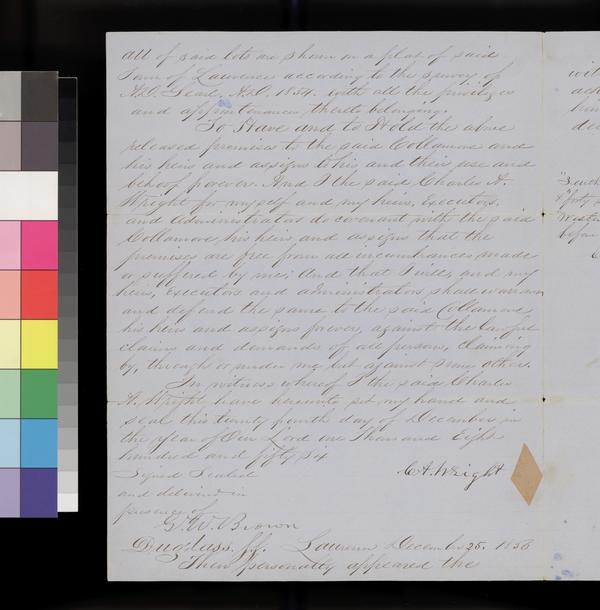 all of said lots are shown on a plat of said
Town of Lawrence according to the survey of
A.D. Searl, A.D. 1854. with all the privileges
and appurtenances thereto belonging.
To Have and to Hold the above
released premises to the said Collamore and
his heirs and assigns to his and their use and
behoof forever. And I the said Charles A.
Wright for myself and my heirs, Executors,
and Administrators do covenant with the said
Collamore, his heirs and assigns that the
premises are free from all incumbrances made
or suffered by me; And that I will, and my
heirs, Executors and administrators shall warrant
and defend the same to the said Collamore,
his heirs and assigns forever, against the lawful
claims and demands of all persons, claiming
by, through or under me but against none other.
In witness whereof I the said Charles
A. Wright have hereunto set my hand and
seal this twenty fourth day of December in
the year of Our Lord one Thousand Eight
hundred and fifty six
Signed Sealed
C A. Wright
and delivered in
presence of
G. W. Brown
Douglass. ss. Lawrence December 25. 1856
Then personally appeared the
wit